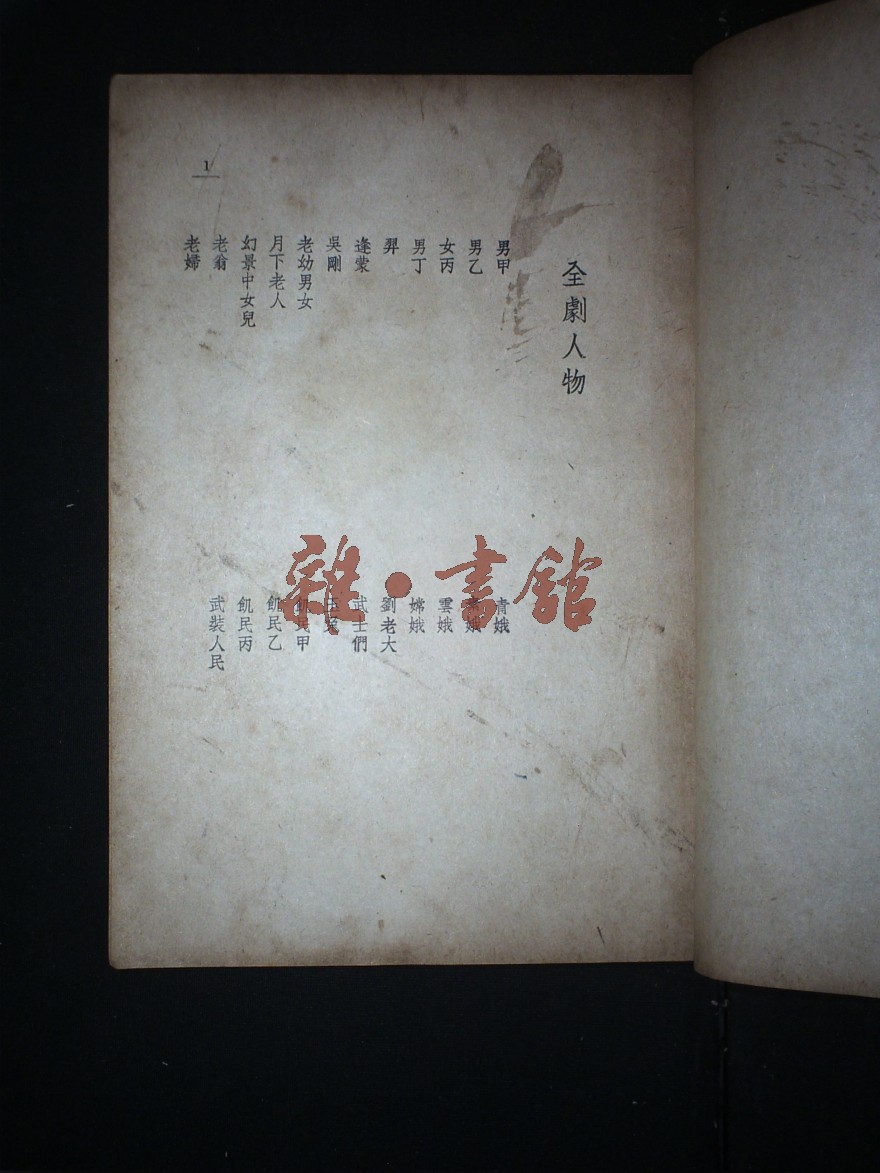 全劇人物
男甲
男乙
女丙
男丁
羿
逢蒙
吳剛
老幼男女
月下老人
幻景中女兒
老翁
老婦
青娥
娥
雲娥
嫦娥
劉老大
武士們
玉兔
飢民甲
飢民乙
飢民丙
武裝人民
1
雜·書館